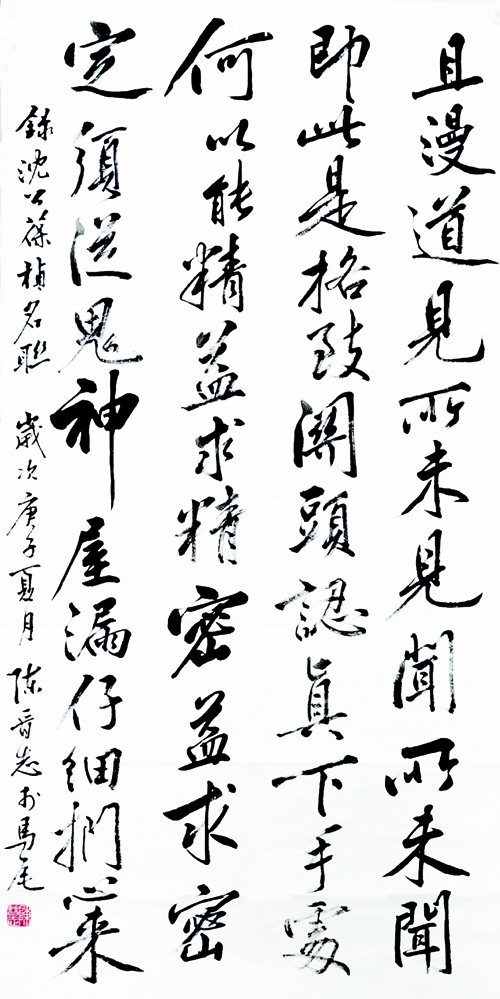 且漫道見所未見聞所未聞
即此是格致關頭認真下手處
何以能精益求精密益求密
定須從鬼神屋漏仔細捫心來
錄沈公葆楨名聯 歲次庚子夏月 陳音志於馬尾